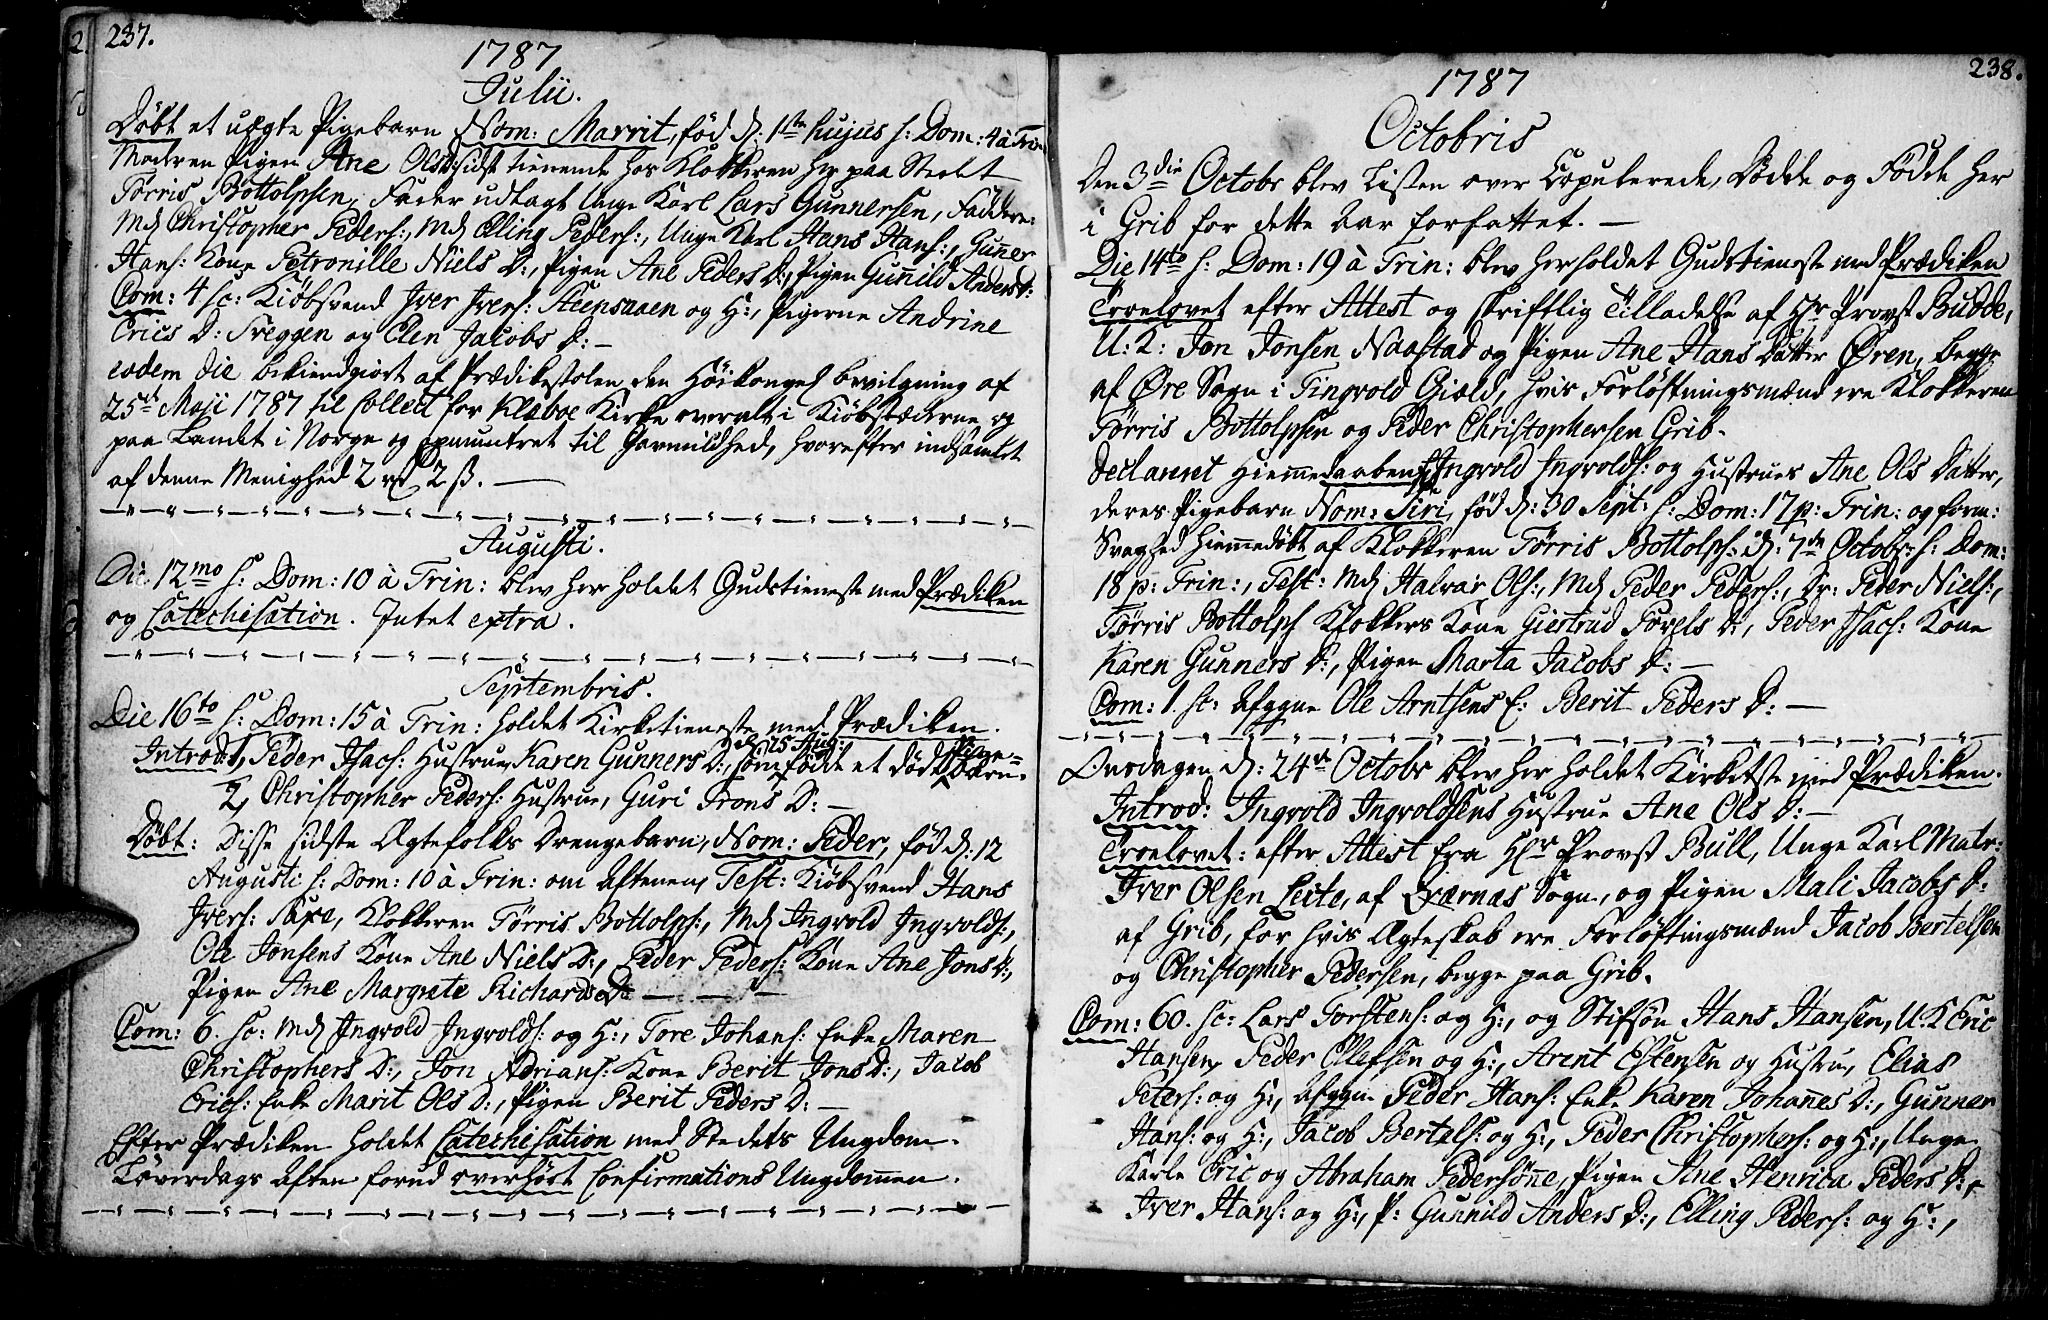 237.
1787
Julii.
Döbt et uægte Pigebarn Nom: Marrit, fød d: 1ste hujus f: Dom: 4 à Trin:
Modren Pigen Ane Olsd: sidst tienende hos Klokkeren her paa Stedet
Torris Bottolphsen, Fader udlagt Unge Karl Lars Gunnersen, Faddere:
Md Christopher Peders:, Md Elling Peders:, Unge Karl Hans Hans:, Guner
Hans: Kone Petronille Niels D:, Pigen Ane Peders D:, Pigen Gunild Anders d:
Com: 4 sc: Kiöbsvend Iver Ivers: Steensaaen og H:, Pigerne Andrine
Erics D: Freggen og Elen Jacobs D: —
eodem die bekiendgiort af Prædikestolen den Höikongel bevilgning af
25de Maji 1787 til Collect for Klæboe Kirke overalt i Kiöbstæderne og
paa Landet i Norge og opmuntret til Gavmildhed, hvorefter indsamlet
af denne Menighed 2 rd 2 ß. —
Augusti.
Die 12mo f: Dom: 10 à Trin: blev her holdet Gudstieneste med Prædiken
og Catechisation. Intet extra.
Septembris.
Die 16to f: Dom: 15 à Trin: holdet Kirketieneste med Prædiken.
Introd: 1, Peder Isacs: Hustrue Karen Gunners D:, som d: 25 Aug: födt et död Pige-Barn.
2, Christopher Peders: Hustrue, Guri Trons D: —
Döbt: Disse sidste Ægtefolks Drengebarn, Nom: Peder, fød d: 12
Augusti f: Dom: 10 à Trin: om Aftenen, Test: Kiöbsvend Hans
Ivers: Saxe, Klokkeren Törris Bottolphs:, Md Ingvold Ingvolds:,
Ole Jonsens Kone Ane Niels D:, Peder Peders: Kone Ane Jons D:,
Pigen Ane Margrete Richards D: —
Com: 6. sc: Md Ingvold Ingvolds: og H:, Tore Johans: Enke Maren
Christophers D:, Jon Adrians: Kone Berit Jons D:, Jacob
Erics: Enke Marit Ols D:, Pigen Berit Peders D: —
Efter Prædiken holdet Catechisation med Stedets Ungdom.
Löverdags Aften forud overhört Confirmations Ungdommen.
238.
1787
Octobris
Den 3die Octobr blev Listen over Copulerede, Dödde og Födde her
i Grib for dette Aar forfattet. —
Die 14to f: Dom: 19 à Trin: blev her holdet Gudstieneste med Prædiken
Troelovet efter Attest og skriftlig Tilladelse af Hr Provst Budde,
U: K: Jon Jonsen Naastad og Pigen Ane Hans Datter Øren, begge
af Øre Sogn i Tingvold Giæld, hvis Forløftningsmænd ere Klokkeren
Törris Bottolphsen og Peder Christophersen Grib.
Declareret Hiemmedaaben f: Ingvold Ingvolds: og Hustrues Ane Ols Datter,
deres Pigebarn Nom: Siri, fød d: 30 Sept: f: Dom: 17 p: Trin: og form:
Svaghed Hiemmedöbt af Klokkeren Törris Bottolphs: d: 7de Octobr: f: Dom:
18 p: Trin:, Test: Md Halvar Ols:, Md Peder Peders:, Dr: Peder Niels:,
Törris Bottolphs Klokkers Kone Giertrud Povels D:, Peder Isacs: Kone
Karen Gunners D:, Pigen Marta Jacobs D: —
Com: 1. sc: Afgangne Ole Arntsens E: Berit Peders D: —
Onsdagen d: 24de Octobr blev her holdet Kirketste med Prædiken.
Introd: Ingvold Ingvoldsens Hustrue Ane Ols D: —
Troelovet: efter Attest fra Hr Provst Bull, Unge Karl Matr:
Iver Olsen Leite, af Qværnæs Sogn, og Pigen Mali Jacobs D:
af Grib, for hvis Ægteskab ere Forløftingsmænd Jacob Bertelsen
og Christopher Pedersen, begge paa Grib.
Com: 60. sc: Lars Torstens: og H:, og Stifsön Hans Hansen, U. K Eric
Hansen, Peder Ellefsen og H:, Arent Estensen og Hustru, Elias
Peters: og H:, Afgangne Peder Hans: Enke Karen Johannes D:, Gunner
Hans: og H:, Jacob Bertels: og H:, Peder Christophers: og H:, Unge
Karle Eric og Abraham Pedersönne, Pigen Ane Henrica Peders D:,
Iver Hans: og H:, P: Gunnild Anders D:, Elling Peders: og H:,